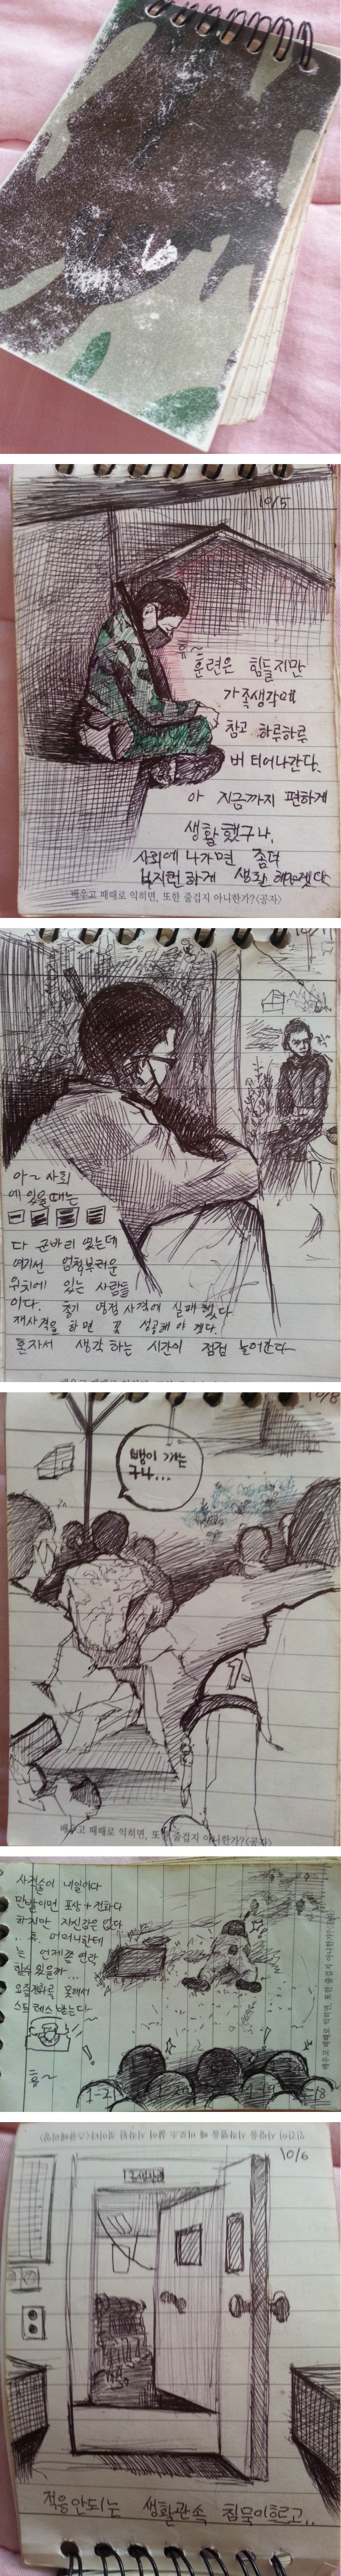 10/5
휴~
훈련은 힘들지만
가족생각에
참고 하루하루
버티어나간다.
아 지금까지 편하게
생활했구나,
사회에 나가면 좀더
부지런하게 생활 해야겠다
배우고 때때로 익히면, 또한 줄겁지 아니한가?<공자>
아~ 사회
에 있을때는
다 군바리 였는데
여기선 엄청부러운
위치에 있는 사람들
이다. 영점 사격에 실패했다
재사격을 하면 꼭 성공해야 겠다.
혼자서 생각하는 시간이 점점 늘어간다
10/8
뺑이 까는
구나...
배우고 때때로 익히면, 또한 줄겁지 아니한가?<공자>
사격술이 내일이다
만발이면 포상+전화다
하지만 자신감은 없다
... 휴, 어머니한테
는 언제쯤 연락
할수 있을까...
요즘 전화를 못해서
스트레스 받는다
휴~
배우고 때때로 익히면, 또한 줄겁지 아니한가?<공자>
1-21
1-19
-18
10/6
적응안되는 생활관속 침묵이흐르고..